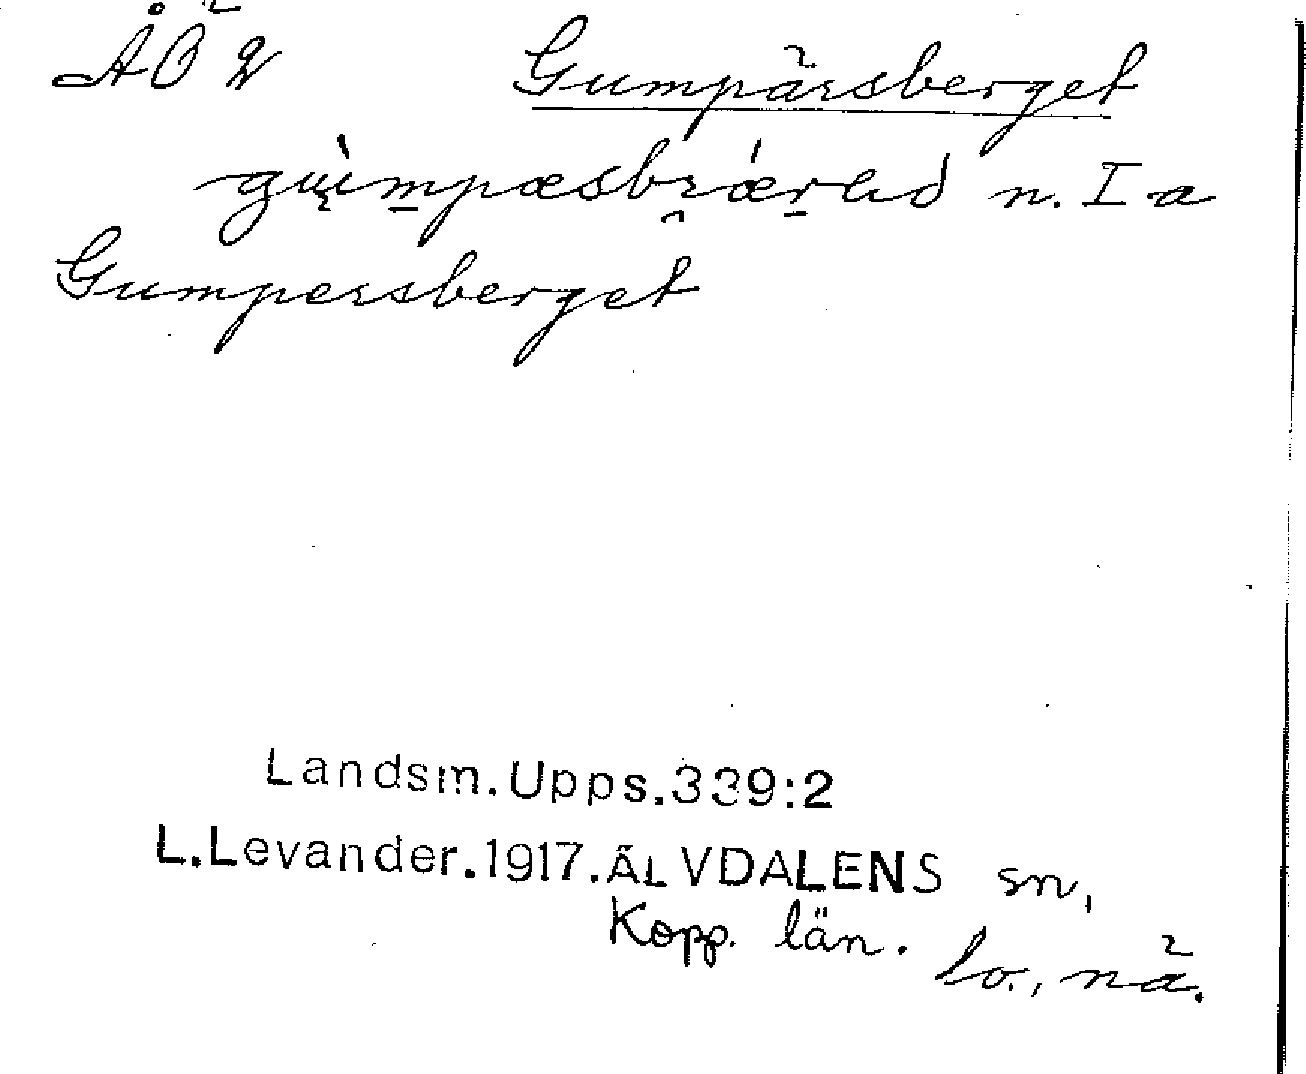 ÅÖ 2 Gumpärsberget
n. I a
Gumpersberget
Landsm.Upps.339:2
L.Levander.1917.ÄLVDALENS sn,
Kopp. län. lo., nä.